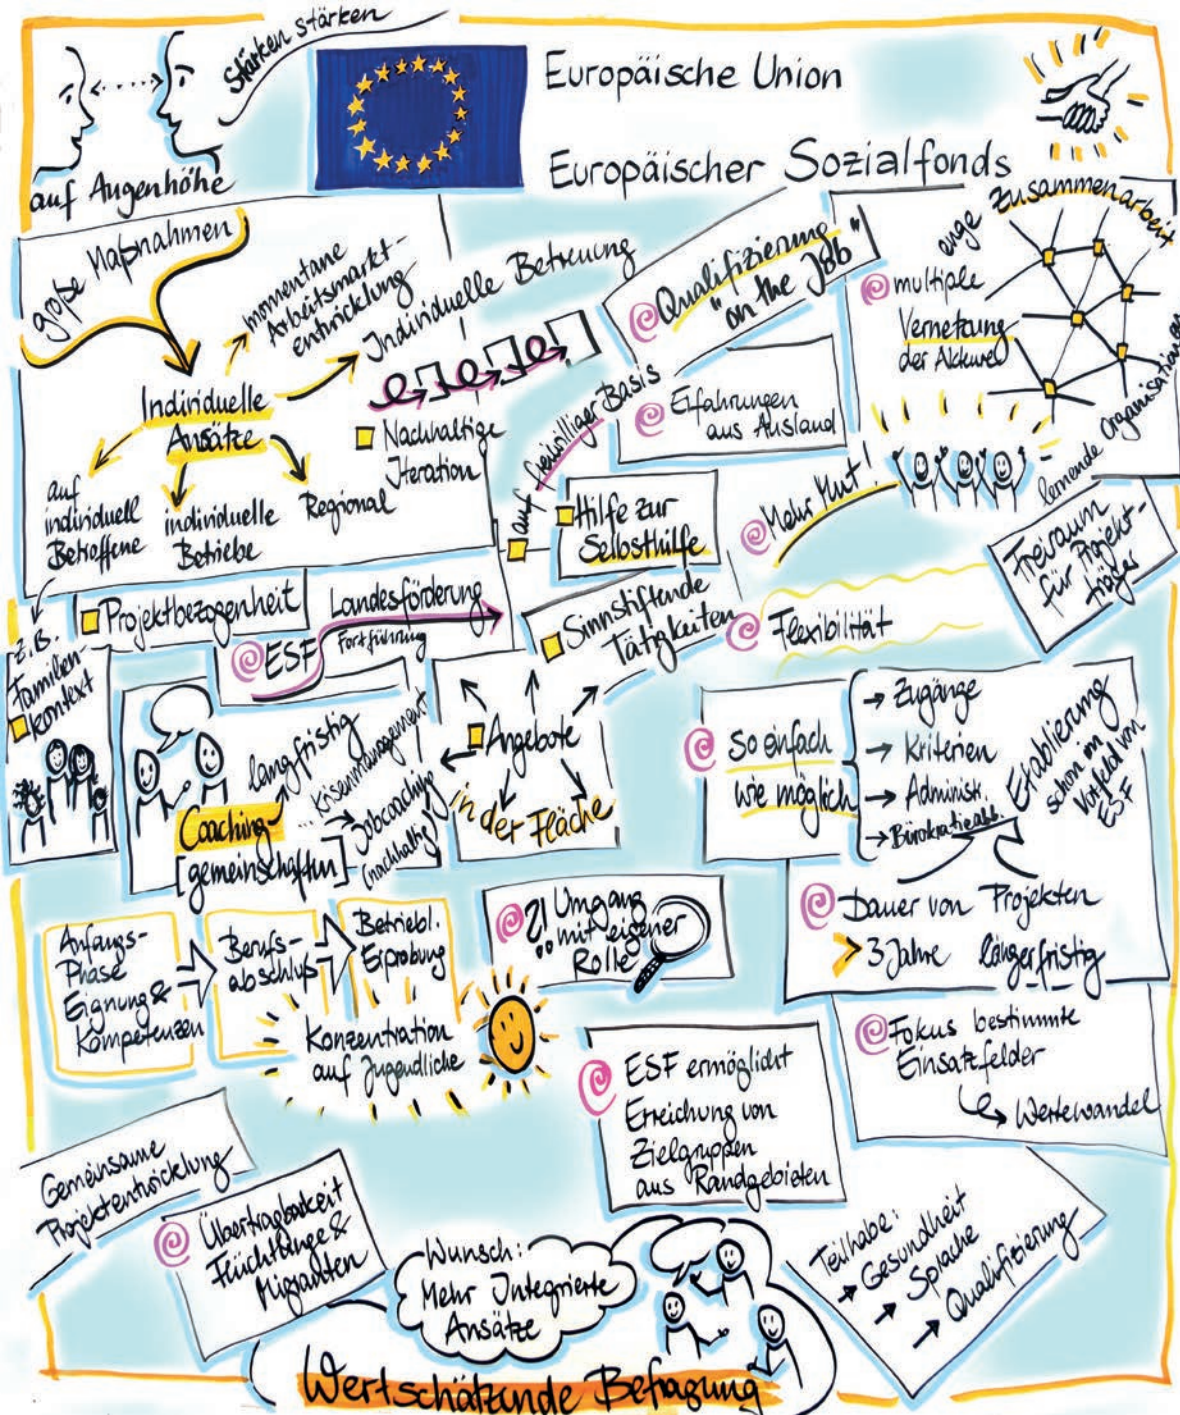 Stärken stärken
auf Augenhöhe
Europäische Union
Europäischer Sozialfonds
große Maßnahmen
momentane
Arbeitsmarkt-
entwicklung
Individuelle Betreuung
Individuelle
Ansätze
auf
individuell
Betroffene
individuelle
Betriebe
Regional
Nachhaltige
Iteration
Qualifizierung
"on the Job"
Erfahrungen
aus Ausland
enge Zusammenarbeit
multiple
Vernetzung
der Akteure
lernende Organisationen
auf freiwilliger Basis
Hilfe zur
Selbsthilfe
Mehr Mut!
Freiraum
für Projekt-
träger
z.B.
Familien-
kontext
Projektbezogenheit
ESF
Landesförderung
Fortführung
Sinnstiftende
Tätigkeiten
Flexibilität
langfristig
... Krisenmanagement
Coaching
[gemeinschaften]
Jobcoaching
(nachhaltig)
Angebote
in der Fläche
so einfach
wie möglich
→ Zugänge
→ Kriterien
→ Administr.
→ Bürokratieabb.
Etablierung
schon im
Vorfeld von
ESF
Dauer von Projekten
> 3 Jahre längerfristig
Anfangs-
Phase
Eignung &
Kompetenzen
Berufs-
abschluß
Betriebl.
Erprobung
Konzentration
auf Jugendliche
?! Umgang
mit eigener
Rolle
ESF ermöglicht
Erreichung von
Zielgruppen
aus Randgebieten
Fokus bestimmte
Einsatzfelder
Wertewandel
Gemeinsame
Projektentwicklung
Übertragbarkeit
Flüchtlinge &
Migranten
Wunsch:
Mehr Integrierte
Ansätze
Teilhabe:
→ Gesundheit
→ Sprache
→ Qualifizierung
Wertschätzende Befragung